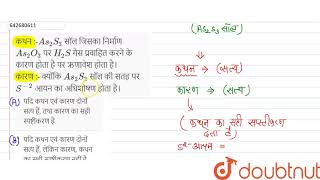 642680611
कथन :- As₂S₃ सॉल जिसका निर्माण
As₂O₃ पर H₂S गैस प्रवाहित करने के
कारण होता है पर ऋणावेश होता है।
कारण :- क्योंकि As₂S₃ सॉत की सतह पर
S⁻² आयन का अधिशोषण होता है।
(A) यदि कथन एवं कारण दोनों
सत्य हैं, तथा कारण का सही
स्पष्टीकरण है.
(B) यदि कथन एवं कारण दोनों
सत्य हैं, लेकिन कारण, कथन
का सही स्पष्टीकरण नहीं है
(As₂S₃ सॉल)
कथन → (सत्य)
कारण → (सत्य)
(कथन का सही स्पष्टीकरण
देता है)
S²⁻ आयन =
doubtnut